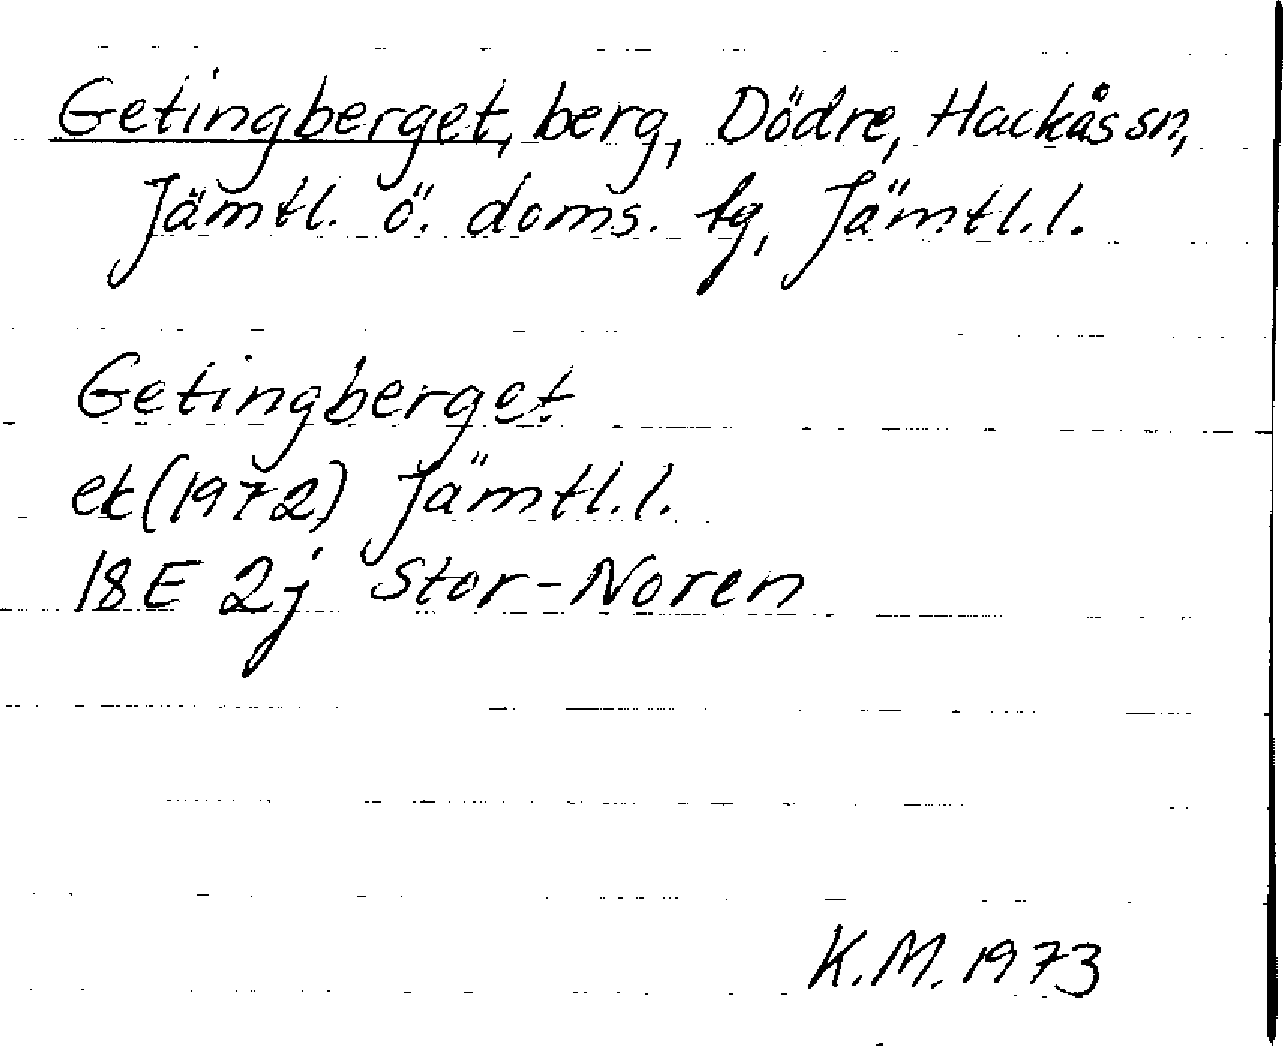 Getingberget, berg, Dödre, Hackås sn,
Jämtl. ö. doms. tg, Jämtl. l.
Getingberget
ek (1972) Jämtl. l.
18E 2j Stor-Noren
K.M. 1973